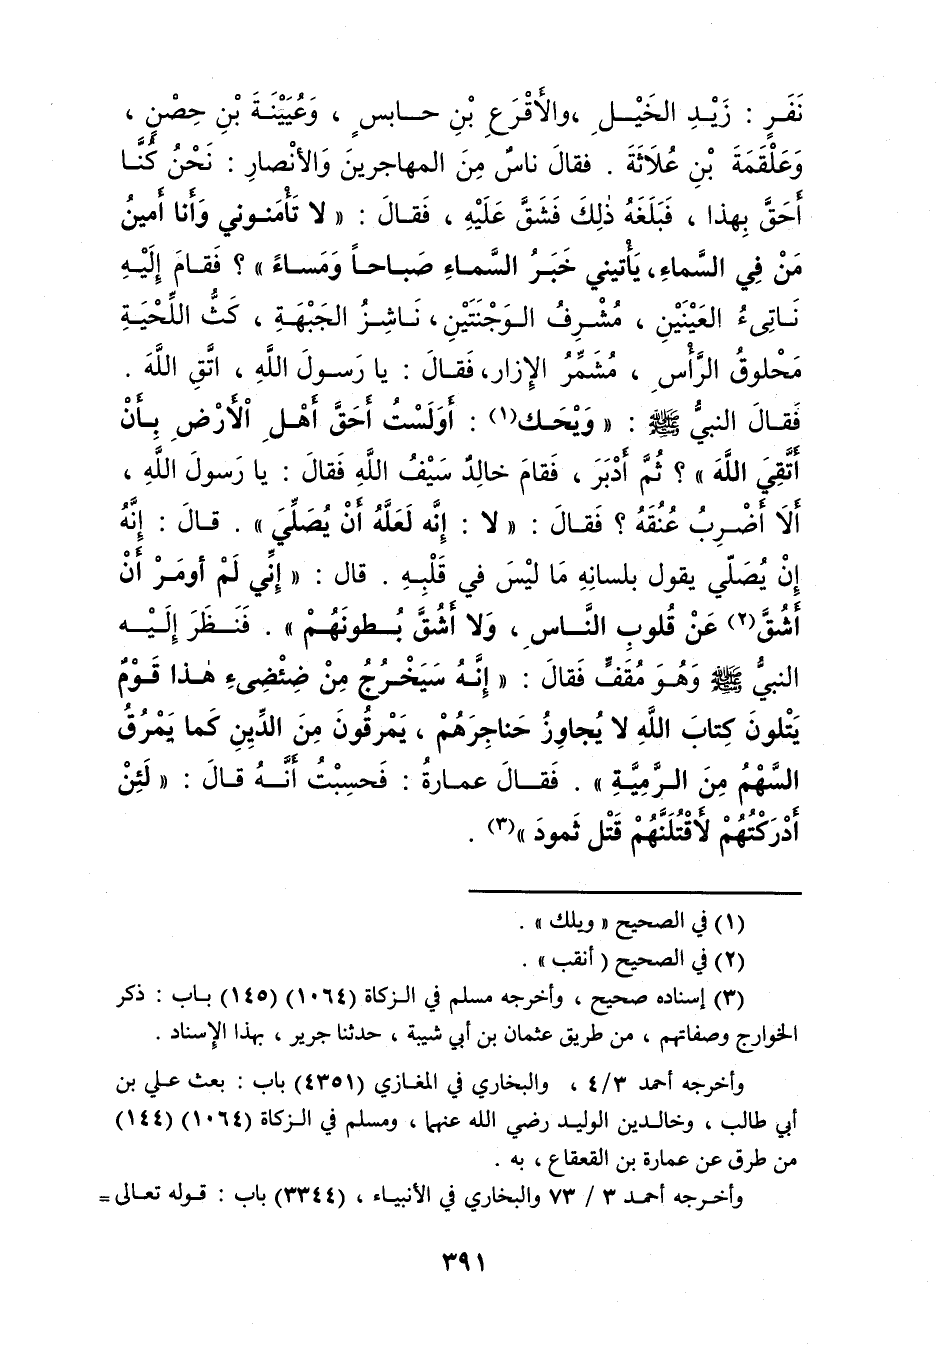 نَفَرٍ : زَيْدِ الخَيْلِ ،والأَقْرَعِ بْنِ حابسٍ ، وَعُيَيْنَةَ بْنِ حِصْنٍ ،
وَعَلْقَمَةَ بْنِ عُلَاثَةَ . فقالَ ناسٌ مِنَ المهاجرينَ وَالأنْصارِ : نَحْنُ كُنَّا
أَحَقَّ بِهذا ، فَبَلَغَهُ ذٰلِكَ فَشَقَّ عَلَيْهِ ، فَقالَ : « لا تَأْمَنوني وَأَنا أَمينُ
مَنْ فِي السَّماءِ، يَأْتيني خَبَرُ السَّماءِ صَباحاً وَمَساءً » ؟ فَقامَ إِلَيْهِ
نَاتِىءُ العَيْنَيْنِ ، مُشْرِفُ الوَجْنَتَيْنِ، نَاشِزُ الجَبْهَةِ ، كَثُّ اللِّحْيَةِ
مَحْلوقُ الرَّأْسِ ، مُشَمِّرُ الإِزار، فَقالَ : يا رَسولَ اللَّهِ ، اتَّقِ اللَّهَ .
فَقالَ النبيُّ ﷺ : « وَيْحَك(١) : أَوَلَسْتُ أَحَقَّ أَهْلِ الْأَرْضِ بِأَنْ
أَتَّقِيَ اللَّهَ » ؟ ثُمَّ أَدْبَرَ ، فَقامَ خالِدٌ سَيْفُ اللَّهِ فَقالَ : يا رَسولَ اللَّهِ ،
أَلَا أَضْرِبُ عُنُقَهُ ؟ فَقالَ : « لا : إِنَّه لَعَلَّهُ أَنْ يُصَلِّيَ » . قالَ : إِنَّهُ
إِنْ يُصَلّي يقول بلسانِهِ مَا لَيْسَ في قَلْبِهِ . قال : « إِنِّي لَمْ أومَرْ أَنْ
أَشُقَّ(٢) عَنْ قُلوبِ النَّاسِ ، وَلا أَشُقَّ بُطونَهُمْ » . فَنَظَرَ إِلَيْهِ
النبيُّ ﷺ وَهُوَ مُقَفٍّ فَقالَ : « إِنَّهُ سَيَخْرُجُ مِنْ ضِئْضِىءِ هٰذا قَوْمٌ
يَتْلونَ كِتابَ اللَّهِ لا يُجاوِزُ حَناجِرَهُمْ ، يَمْرقُونَ مِنَ الدِّينِ كَما يَمْرُقُ
السَّهْمُ مِنَ الرَّمِيَّةِ » . فَقالَ عمارةُ : فَحسِبْتُ أَنَّهُ قالَ : « لَئِنْ
أَدْرَكْتُهُمْ لَأَقْتُلَنَّهُمْ قَتْلَ ثَمودَ »(٣) .
(١) في الصحيح « ويلك » .
(٢) في الصحيح ( أنقب » .
(٣) إسناده صحيح ، وأخرجه مسلم في الزكاة (١٠٦٤) (١٤٥) باب : ذكر
الخوارج وصفاتهم ، من طريق عثمان بن أبي شيبة ، حدثنا جرير ، بهذا الإسناد .
وأخرجه أحمد ٤/٣ ، والبخاري في المغازي (٤٣٥١) باب : بعث علي بن
أبي طالب ، وخالدبن الوليد رضي الله عنهما ، ومسلم في الزكاة (١٠٦٤) (١٤٤)
من طرق عن عمارة بن القعقاع ، به .
وأخرجه أحمد ٣ / ٧٣ والبخاري في الأنبياء ، (٣٣٤٤) باب : قوله تعالى =
٣٩١